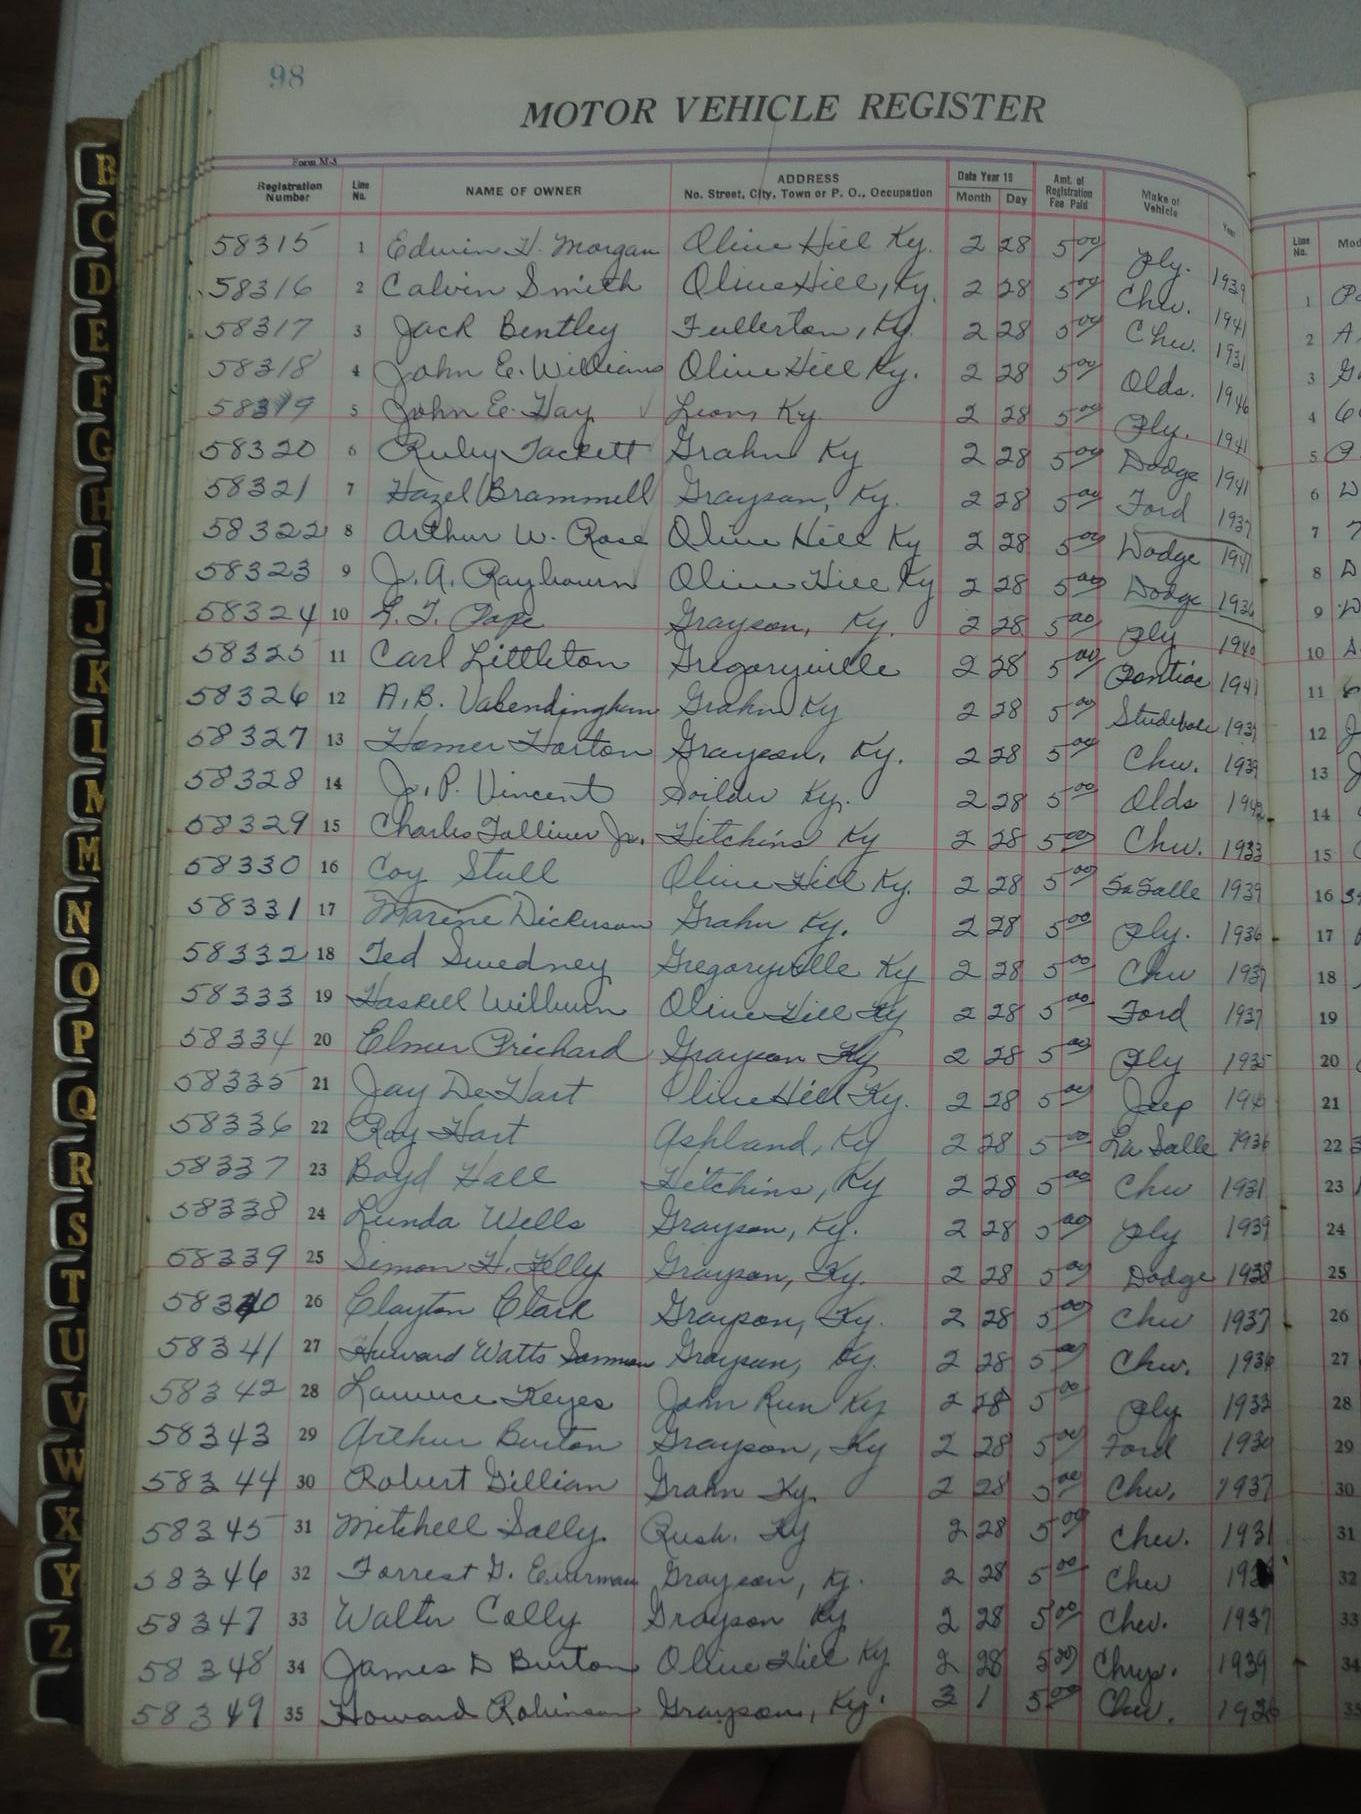 98
MOTOR VEHICLE REGISTER
Form M-3
Registration Number Line No. NAME OF OWNER ADDRESS No. Street, City, Town or P. O., Occupation Date Year 19 Month Day Amt. of Registration Fee Paid Make of Vehicle Year Line No.
58315 1 Edwin H. Morgan Olive Hill Ky. 2 28 5 00 Ply. 1939
58316 2 Calvin Smith Olive Hill, Ky. 2 28 5 00 Chev. 1941
58317 3 Jack Bentley Fullerton, Ky. 2 28 5 00 Chev. 1931
58318 4 John E. Williams Olive Hill Ky. 2 28 5 00 Olds. 1946
58319 5 John E. Hay Leon, Ky 2 28 5 00 Ply. 1941
58320 6 Ruby Tackett Grahn Ky 2 28 5 00 Dodge 1941
58321 7 Hazel Brammell Grayson, Ky. 2 28 5 00 Ford 1937
58322 8 Arthur W. Rose Olive Hill Ky 2 28 5 00 Dodge 1941
58323 9 J. A. Raybourn Olive Hill Ky 2 28 5 00 Dodge 1936
58324 10 Pope Grayson, Ky. 2 28 5 00 Ply 1940
58325 11 Carl Littleton Gregoryville 2 28 5 00 Pontiac 1941
58326 12 A. B. Grahn Ky 2 28 5 00 193
58327 13 Homer Horton Grayson, Ky. 2 28 5 00 Chev. 1939
58328 14 J. P. Vincent Soldier Ky. 2 28 5 00 Olds 194
58329 15 Charles Talliver Jr. Hitchins Ky 2 28 5 00 Chev. 1933
58330 16 Coy Stull Olive Hill Ky. 2 28 5 00 LaSalle 1939
58331 17 Dickerson Grahn Ky. 2 28 5 00 Ply. 1936
58332 18 Ted Swedney Gregoryville Ky 2 28 5 00 Chev 1937
58333 19 Haskell Wilburn Olive Hill Ky 2 28 5 00 Ford 1937
58334 20 Elmer Prichard Grayson Ky 2 28 5 00 Ply 1935
58335 21 Jay DeHart Olive Hill Ky. 2 28 5 00 Jeep
58336 22 Roy Hart Ashland, Ky 2 28 5 00 La Salle 1936
58337 23 Boyd Hall Hitchins, Ky 2 28 5 00 Chev 1931
58338 24 Lunda Wells Grayson, Ky. 2 28 5 00 Ply 1939
58339 25 Simon H. Kelly Grayson, Ky. 2 28 5 00 Dodge 1938
58340 26 Clayton Clark Grayson, Ky. 2 28 5 00 Chev 1937
58341 27 Howard Watts Grayson, Ky. 2 28 5 00 Chev. 1936
58342 28 Lawrence Keyes John Run Ky 2 28 5 00 Ply 1933
58343 29 Arthur Burton Grayson, Ky 2 28 5 00 Ford 1930
58344 30 Robert Gillian Grahn Ky. 2 28 5 00 Chev. 1937
58345 31 Mitchell Sally Rush. Ky 2 28 5 00 Chev. 1931
58346 32 Forrest G. Grayson, Ky. 2 28 5 00 Chev
58347 33 Walter Colly Grayson Ky 2 28 5 00 Chev. 1937
58348 34 James D Burton Olive Hill Ky 2 28 5 00 Chrys. 1939
58349 35 Howard Robinson Grayson, Ky. 3 1 5 00 Chev. 1936
B
C
D
E
F
G
H
I
J
K
L
M
M
N
O
P
Q
R
S
T
U
V
W
X
Y
Z